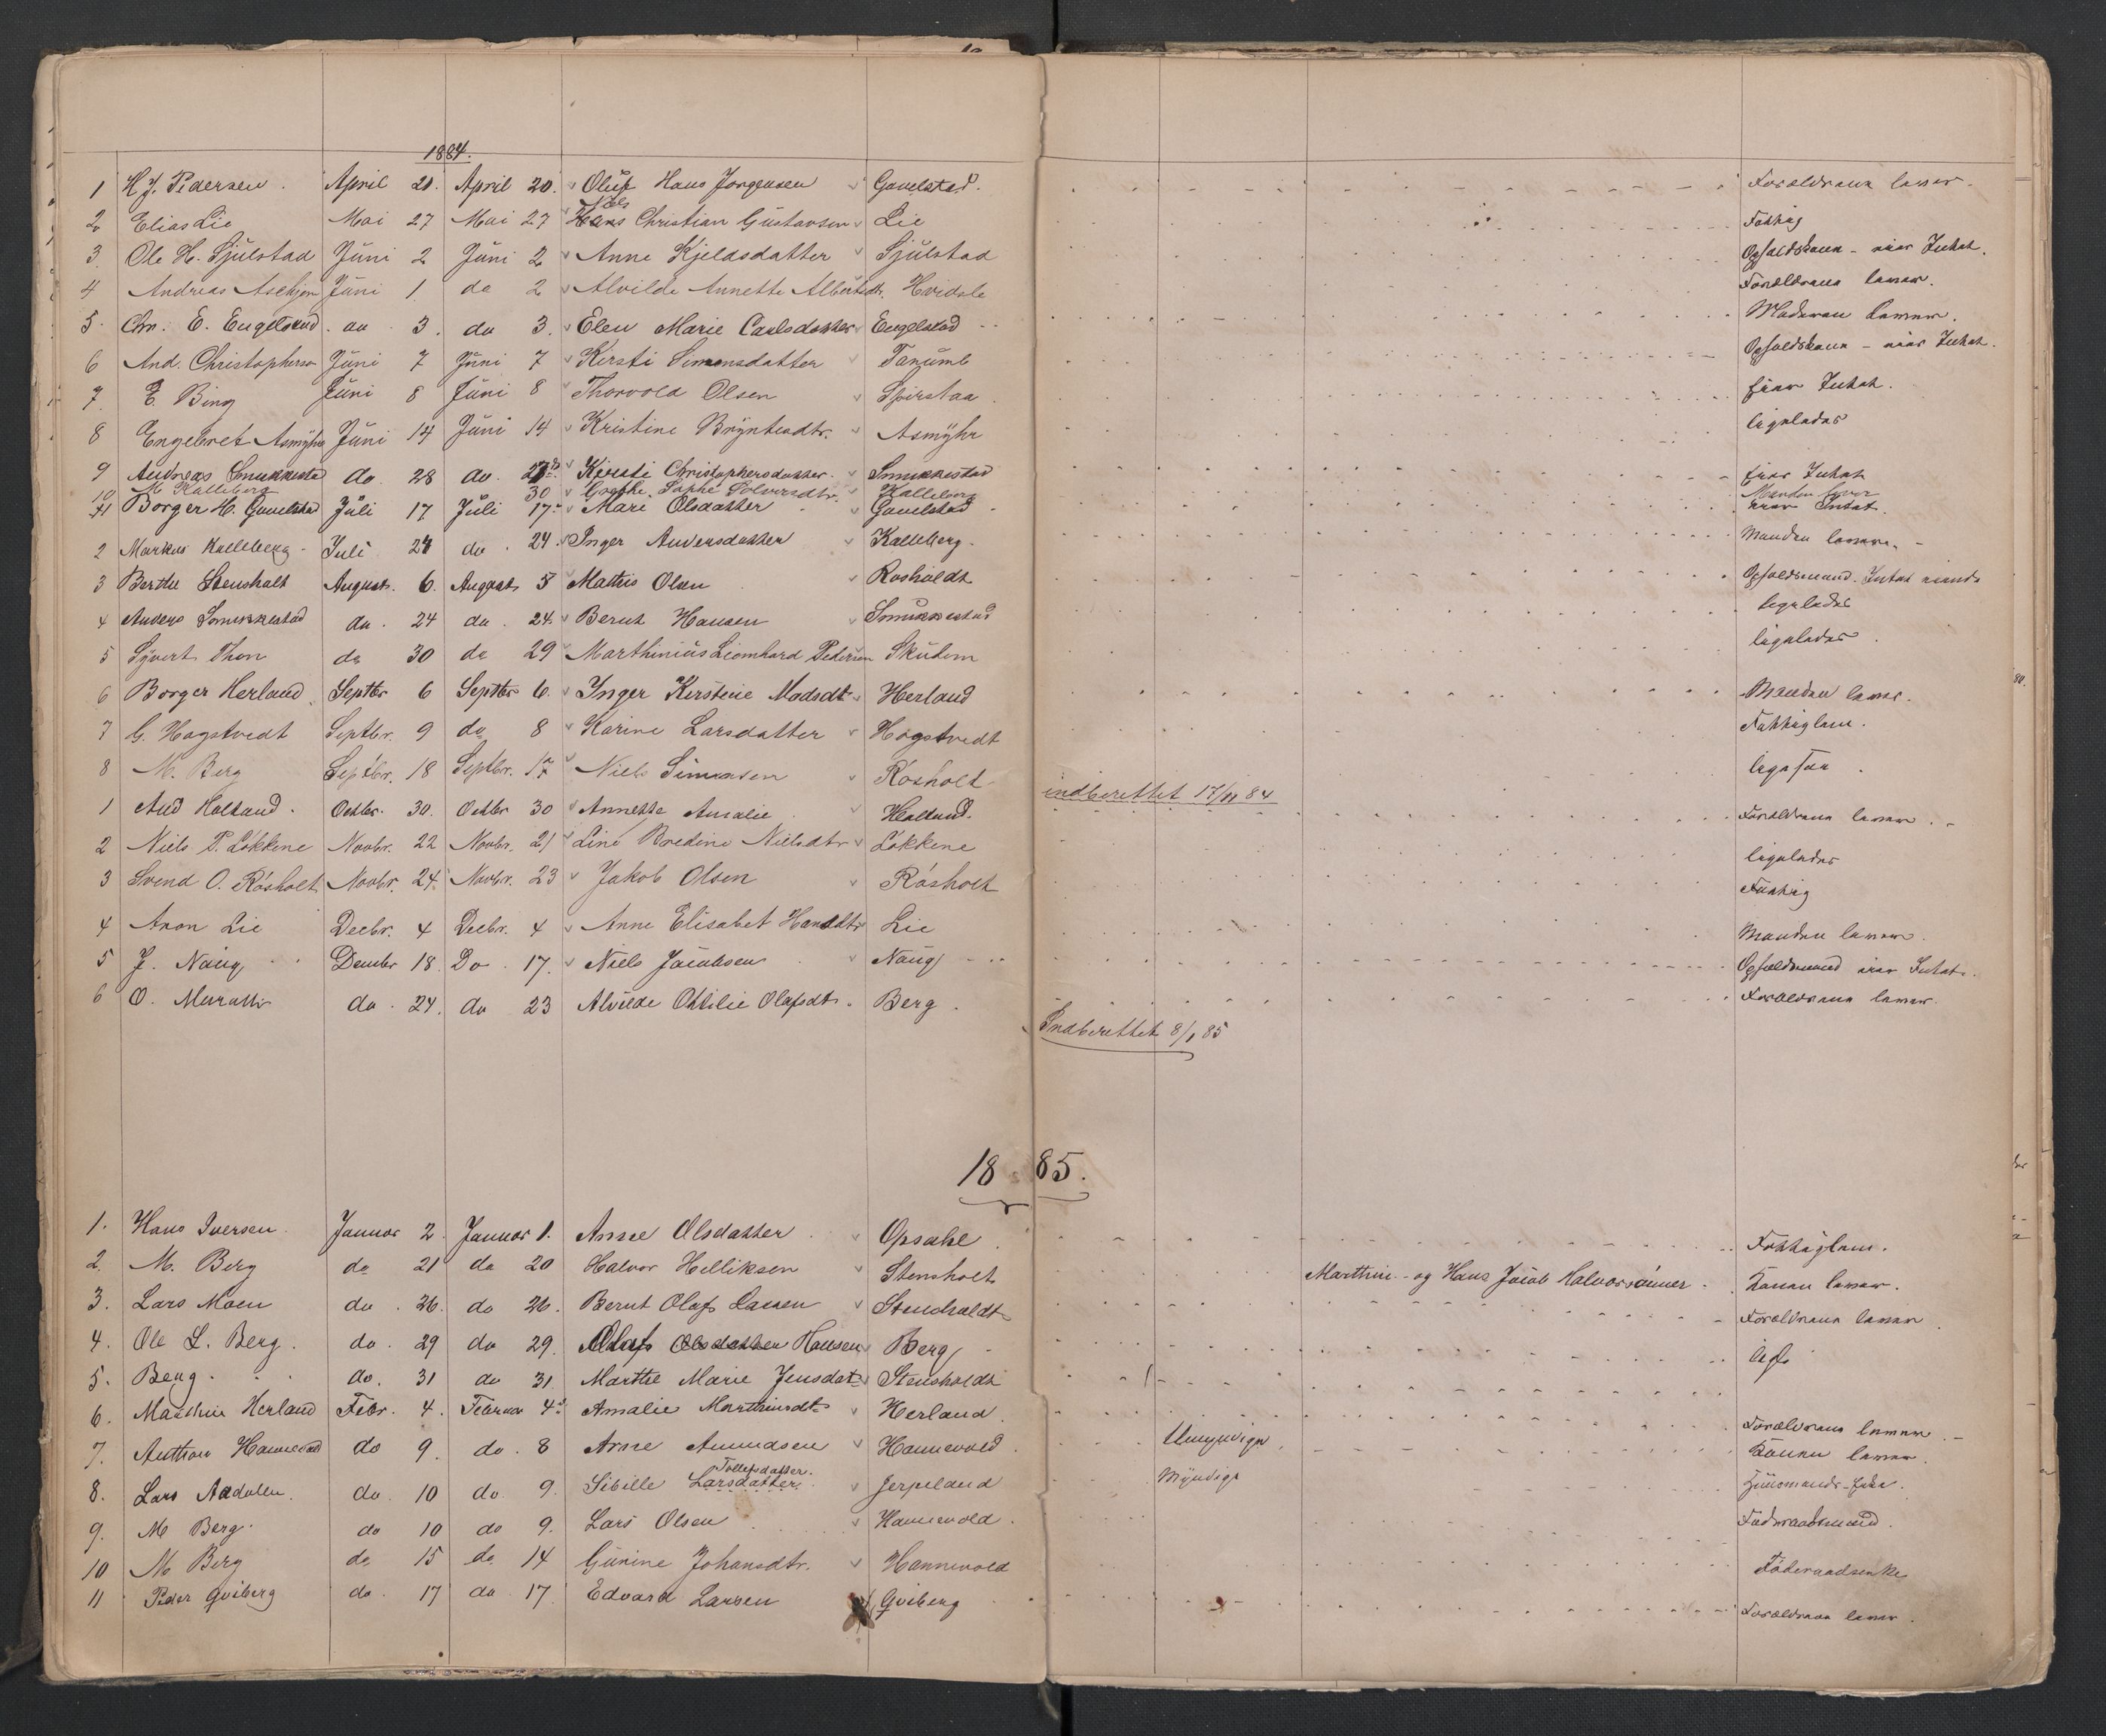 1884.
1 H J. Pedersen. April 21. April 20. Oluf Hans Jorgensen Gauelstad. Forældrene lever.
Niels
2 Elias Lie Mai 27 Mai 27 Hans Christian Gustavsen Lie Fattig
3. Ole H. Sjulstad Juni 2 Juni 2 Anne Kjeldsdatter Sjulstad
4 Andreas Askjem Juni 1 do 2 Alvilde Annette Albertsdtr. Hvidste Forældrene lever.
5. Chr. E. Engelstad. do 3. do 3. Elen Marie Carlsdatter Engelstad Moderen lever.
6 And. Christophersen Juni 7 Juni 7 Kersti Simensdatter Tanumb
7. E. Bing Juni 8 Juni 8 Thorvold Olsen Spirstaa
8 Engebret Asmyhr Juni 14 Juni 14 Kristine Bryntesdtr. Asmyhr ligeledes
9 Andreas Smukkestad do 28 do Kjersti Christophersdatter Smukkestad
10 M Kalleberg 30 Grethe Sophe Solversdtr. Kalleberg Manden lever
11 Borger H. Gauelstad Juli 17 Juli 17 Mari Olsdatter Gauelstad
2 Markus Kalleberg Juli 24 do 24. Inger Andersdatter Kalleberg. Manden lever.
3 Berthe Stensholt August. 6. August 5 Mathis Olsen Rosholdt
4 Anders Smukkestad do. 24 do. 24. Bernt Hansen Smukkestad ligeledes
5 Syvert Thon do 30 do 29 Marthinius Leonhard Pedersen Skutem ligeledes
6 Borger Herland Septbr 6 Septbr 6. Inger Kerstine Madsdt Herland Manden lever.
7 G. Hogstvedt Septbr. 9 do 8 Karine Larsdatter Hogstvedt Fattiglem.
8 M. Berg Septbr. 18 Septbr. 17 Niels Simensen Rosholt ligesaa
indberettet 17/10 84
1 And Holtand. Octbr. 30. Octbr 30 Annette Amalie Holtand. Forældrene lever.
2 Niels P. Løkkene Novbr. 22 Novbr. 21 Line Bredine Nielsdtr Løkkene ligeledes
3 Svend O. Rosholt Novbr. 24. Novbr. 23 Jakob Olsen Rosholt Fattig
4 Aron Lie Decbr. 4 Decbr. 4 Anne Elisabet Hansdtr Lie Manden lever.
5 J. Naug December 18. Do 17. Niels Jacobsen Naug
6 O. do. 24. do 23 Alvilde Ottilie Olafsdt. Berg. Forældrene lever.
Indberettet 8/1 85
1885.
1. Hans Iversen. Januar 2. Januar 1. Anne Olsdatter Opsahl Fattiglem.
2. M. Berg do 21 do 20 Halvor Helliksen Stensholt Marthin og Hans Jacob Halvorsønner Konen lever.
3. Lars Moen do. 26. do 26. Bernt Olaf Larsen Stensholdt Forældrene lever
4. Ole L. Berg. do. 29 do 29. Olaf Hansen Berg
5. Berg. do. 31 do 31 Marthe Marie Jensdat Stensholdt
6. Mathias Herland Febr. 4. Februar 4. Amalie Marthinsdt Herland Forældrene lever
7. Anthon Hannevold do 9. do. 8 Arne Amundsen Hannevold Umyndige Konen lever.
Tollefsdatter.
8. Lars Aadalen. do. 10 do. 9. Sibille Larsdatter Jerpeland Myndige
9. M Berg. do 10 do 9. Lars Olsen Hannevold Føderaadsmand.
10 M Berg do 15 do 14 Gunine Johansdtr. Hannevold Føderaadsenke
11 Peder Gviberg do. 17 do. 17 Edvard Larsen Gviberg Forældrene lever.